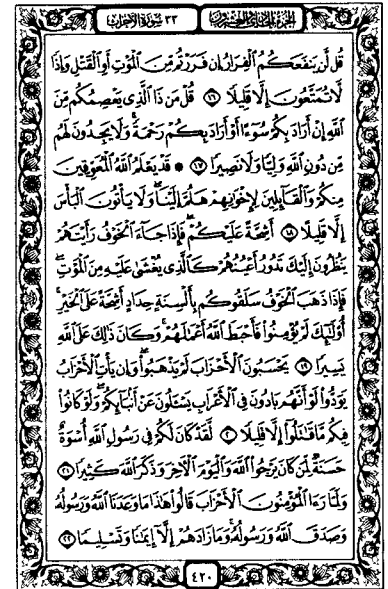 الجزء الحادي والعشرون
٣٣ سورة الأحزاب
قُل لَّن يَنفَعَكُمُ ٱلْفِرَارُ إِن فَرَرْتُم مِّنَ ٱلْمَوْتِ أَوِ ٱلْقَتْلِ وَإِذًا
لَّا تُمَتَّعُونَ إِلَّا قَلِيلًا ١٦ قُلْ مَن ذَا ٱلَّذِى يَعْصِمُكُم مِّنَ
ٱللَّهِ إِنْ أَرَادَ بِكُمْ سُوٓءًا أَوْ أَرَادَ بِكُمْ رَحْمَةً وَلَا يَجِدُونَ لَهُم
مِّن دُونِ ٱللَّهِ وَلِيًّا وَلَا نَصِيرًا ١٧ * قَدْ يَعْلَمُ ٱللَّهُ ٱلْمُعَوِّقِينَ
مِنكُمْ وَٱلْقَآئِلِينَ لِإِخْوَٰنِهِمْ هَلُمَّ إِلَيْنَا وَلَا يَأْتُونَ ٱلْبَأْسَ
إِلَّا قَلِيلًا ١٨ أَشِحَّةً عَلَيْكُمْ فَإِذَا جَآءَ ٱلْخَوْفُ رَأَيْتَهُمْ
يَنظُرُونَ إِلَيْكَ تَدُورُ أَعْيُنُهُمْ كَٱلَّذِى يُغْشَىٰ عَلَيْهِ مِنَ ٱلْمَوْتِ
فَإِذَا ذَهَبَ ٱلْخَوْفُ سَلَقُوكُم بِأَلْسِنَةٍ حِدَادٍ أَشِحَّةً عَلَى ٱلْخَيْرِ
أُو۟لَٰٓئِكَ لَمْ يُؤْمِنُوا۟ فَأَحْبَطَ ٱللَّهُ أَعْمَٰلَهُمْ وَكَانَ ذَٰلِكَ عَلَى ٱللَّهِ
يَسِيرًا ١٩ يَحْسَبُونَ ٱلْأَحْزَابَ لَمْ يَذْهَبُوا۟ وَإِن يَأْتِ ٱلْأَحْزَابُ
يَوَدُّوا۟ لَوْ أَنَّهُم بَادُونَ فِى ٱلْأَعْرَابِ يَسْـَٔلُونَ عَنْ أَنۢبَآئِكُمْ وَلَوْ كَانُوا۟
فِيكُم مَّا قَٰتَلُوٓا۟ إِلَّا قَلِيلًا ٢٠ لَّقَدْ كَانَ لَكُمْ فِى رَسُولِ ٱللَّهِ أُسْوَةٌ
حَسَنَةٌ لِّمَن كَانَ يَرْجُوا۟ ٱللَّهَ وَٱلْيَوْمَ ٱلْـَٔاخِرَ وَذَكَرَ ٱللَّهَ كَثِيرًا ٢١
وَلَمَّا رَءَا ٱلْمُؤْمِنُونَ ٱلْأَحْزَابَ قَالُوا۟ هَٰذَا مَا وَعَدَنَا ٱللَّهُ وَرَسُولُهُۥ
وَصَدَقَ ٱللَّهُ وَرَسُولُهُۥ وَمَا زَادَهُمْ إِلَّآ إِيمَٰنًا وَتَسْلِيمًا ٢٢
٤٢٠